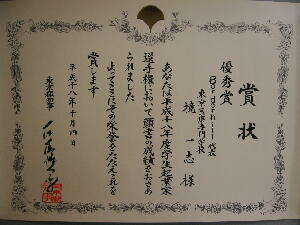 賞状
優秀賞
Borderhill 代表
様
あなたは平成十八年度学生起業家
選手権において頭書の成績をおさめ
られました
よってここにその栄誉をたたえこれを
賞します
平成十八年十月四日
東京都知事